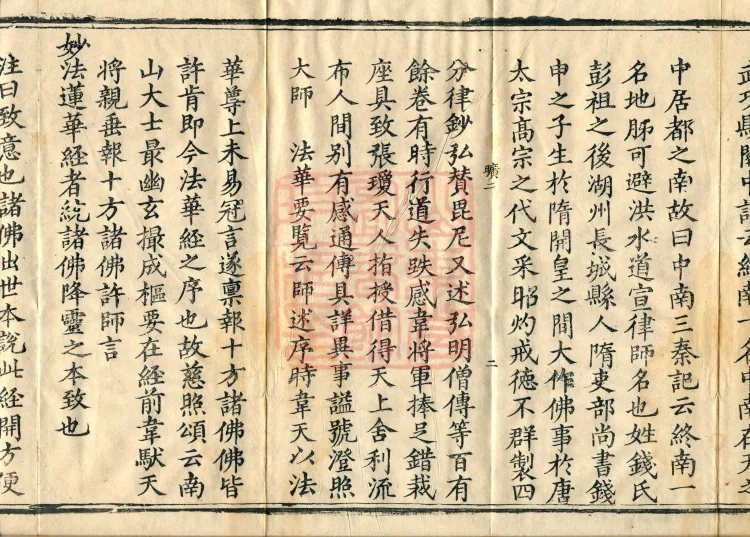 中居都之南故曰中南三秦記云終南一
名地肺可避洪水道宣律師名也姓錢氏
彭祖之後湖州長城縣人隋吏部尚書錢
申之子生於隋開皇之間大作佛事於唐
太宗高宗之代文采昭灼戒德不群製四
曠二
二
分律鈔弘賛毘尼又述弘明僧傳等百有
餘卷有時行道失跌感韋將軍捧足錯裁
座具致張瓊天人指授借得天上舍利流
布人間別有感通傳具詳異事謚號澄照
大師 法華要覽云師述序時韋天以法
華尊上未易冠言遂稟報十方諸佛佛皆
許肯即今法華經之序也故慈照頌云南
山大士最幽玄撮成樞要在經前韋馱天
將親垂報十方諸佛許師言
妙法蓮華經者統諸佛降靈之本致也
注曰致意也諸佛出世本說此經開方便